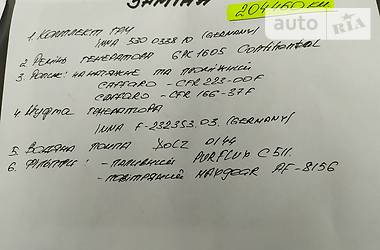 ЗАМІНА
204460 км.
1. Комплект ГРМ
INNA 530 0338 10 (GERMANY)
2. Ремінь генератора 6PK1605 Continental
3. Ролік: натяжне та проміжний
CAFFARO - CFR 223-00F
CAFFARO - CFR 166-37F
4. Муфта генератора
INNA F-232353.03 (GERMANY)
5. Водяна помпа DOLZ O144
6. Фільтри: - паливний PURFLUX C511.
- повітряний AF-8156
auto RIA